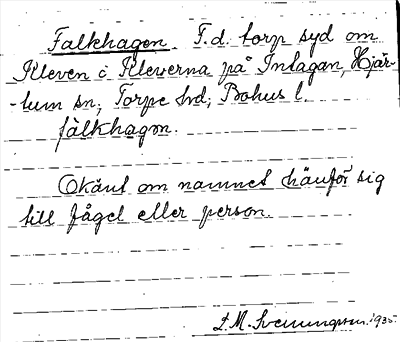 Falkhagen. F.d. torp syd om
Kleven i Kleverna på Intagan, Hjär-
-tum sn, Torpe hd, Bohus l.
fàlkhagɘn.
Okänt om namnet hänför sig
till fågel eller person.
L.M. Svenungsson. 1935.